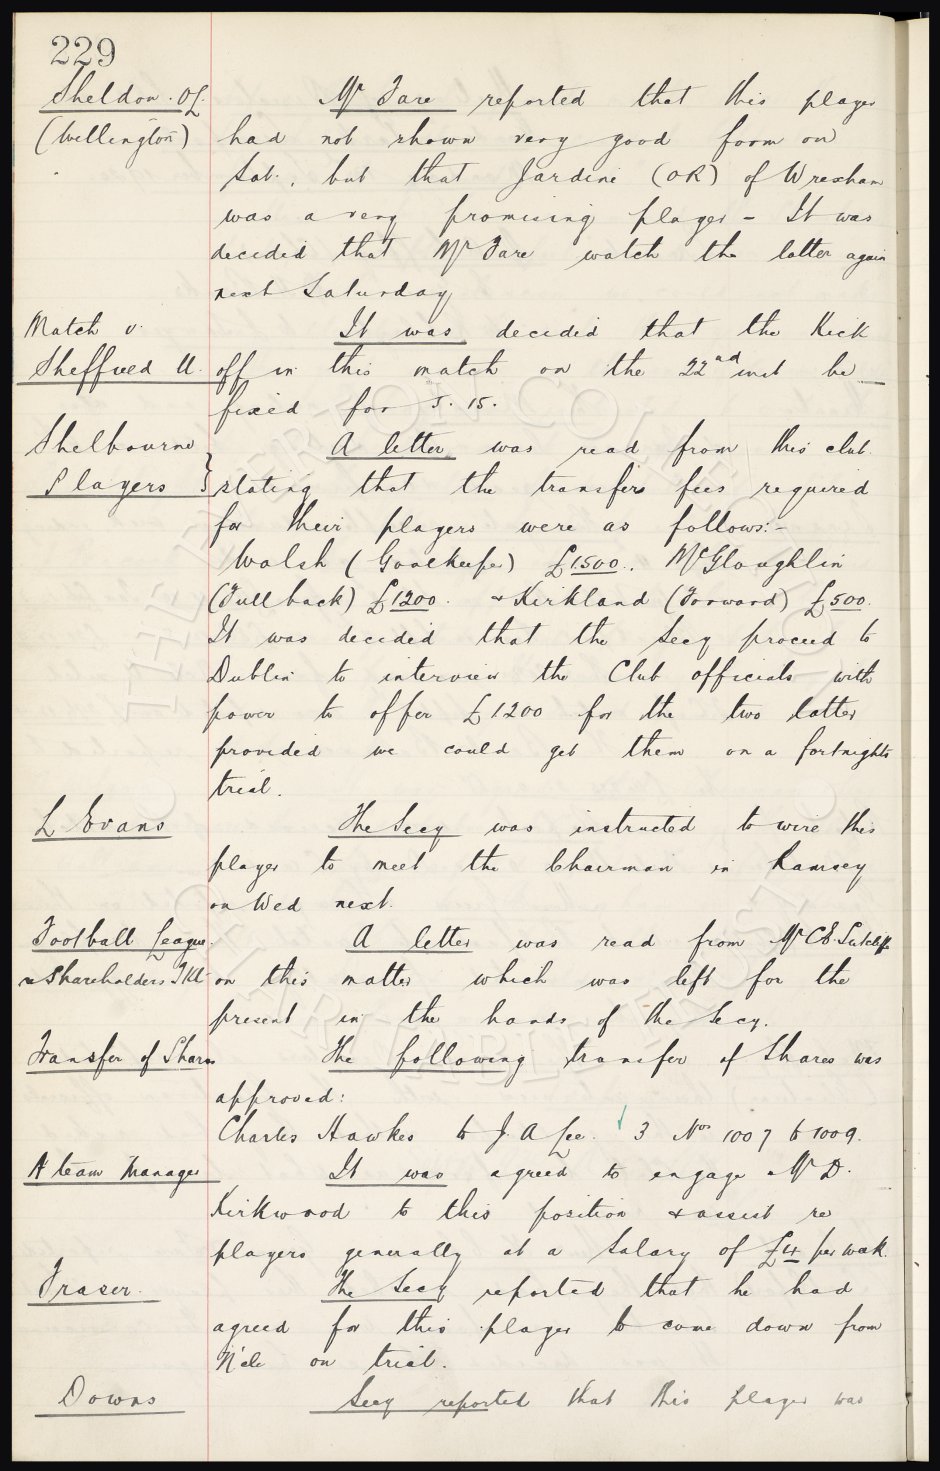 229
Sheldon. OL.
(Wellington)
Mr Fare reported that this player
had not shown very good form on
Sat., but that Jardine (OR) of Wrexham
was a very promising player – It was
decided that Mr Fare watch the latter again
next Saturday
Match v.
Sheffield U.
It was decided that the Kick
off in this match on the 22nd inst be
fixed for 3.15.
Shelbourne
Players }
A letter was read from this club
stating that the transfer fees required
for their players were as follows:-
Walsh (Goalkeeper) £1500. McGloughlin
(Fullback) £1200. & Kirkland (Forward) £500.
It was decided that the Secy proceed to
Dublin to interview the Club officials with
power to offer £1200 for the two latter
provided we could get them on a fortnights
trial.
L Evans
The Secy was instructed to wire this
player to meet the Chairman in Ramsey
on Wed next.
Football League
& Shareholders Tkts
A letter was read from Mr C E Sutcliffe
on this matter which was left for the
present in the hands of the Secy.
Transfer of Shares
The following transfer of shares was
approved:
Charles Hawkes to J. A Lee. 3 Nos 1007 to 1009.
A team Manager
It was agreed to engage Mr D.
Kirkwood to this position & assist re
players generally at a salary of £4 per week.
Fraser.
The Secy reported that he had
agreed for this player to come down from
N'cle on trial.
Downs
Secy reported that this player was